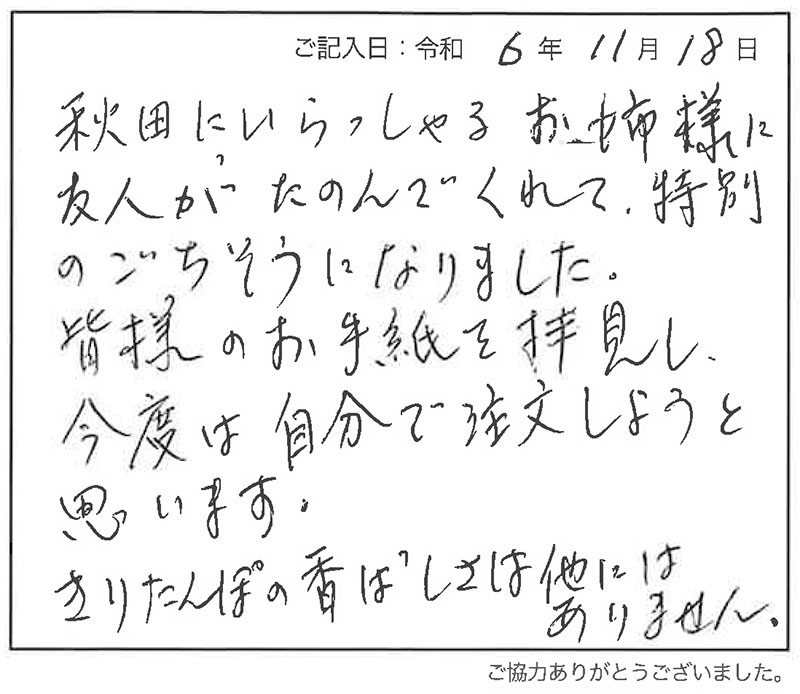 ご記入日：令和 6 年 11 月 18 日
秋田にいらっしゃるお姉様に
友人がたのんでくれて、特別
のごちそうになりました。
皆様のお手紙を拝見し、
今度は自分で注文しようと
思います。
きりたんぽの香ばしさは他には
ありません。
ご協力ありがとうございました。